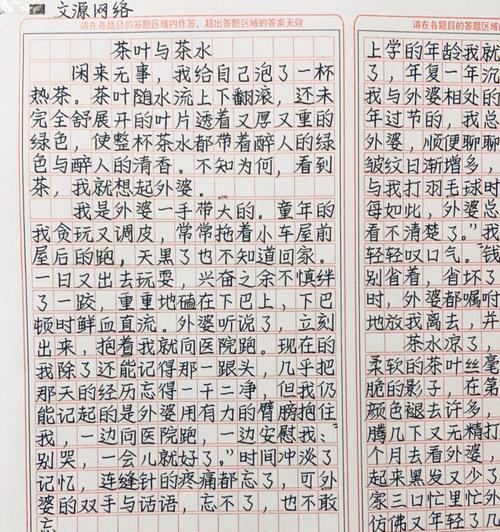 文源网络
请在各题目的答题区域内作答，超出答题区域的答案无效
茶叶与茶水
闲来无事，我给自己泡了一杯
热茶。茶叶随水流上下翻滚，还未
完全舒展开的叶片透着又厚又重的
绿色，使整杯茶水都带着醉人的绿
色与醉人的清香。不知为何，看到
茶，我就想起外婆。
我是外婆一手带大的。童年的
我贪玩又调皮，常常拖着小车屋前
屋后的跑，天黑了也不知道回家。
一日又出去玩耍，兴奋之余不慎绊
了一跤，重重地磕在下巴上，下巴
顿时鲜血直流。外婆听说了，立刻
出来，抱着我就向医院跑。现在的
我除了还能记得那一跟头，几乎把
那天的经历忘得一干二净，但我仍
能记起的是外婆用有力的臂膀抱住
我，一边向医院跑，一边安慰我：
别哭，一会儿就好了。”时间冲淡了
记忆，连缝针的疼痛都忘了，可外
婆的双手与话语，忘不了，也不敢
忘
请在各题目的答题区域
上学的年龄我就
了，年复一年沉
我与外婆相处的
年过节的，我总
外婆，顺便聊聊
皱纹日渐增多，
与我打羽毛球时
每如此，外婆总
看不清楚了。”我
轻轻叹口气。钱
别省着，省坏了
时，外婆都嘱咐
地放我离去，并
茶水凉了，
柔软的茶叶丝毫
脆的影子，在第
颜色褪去许多，
腾几下又无精打
个月去看外婆，
起来黑发又少了
家三口忙里忙外
仿佛又年轻了几